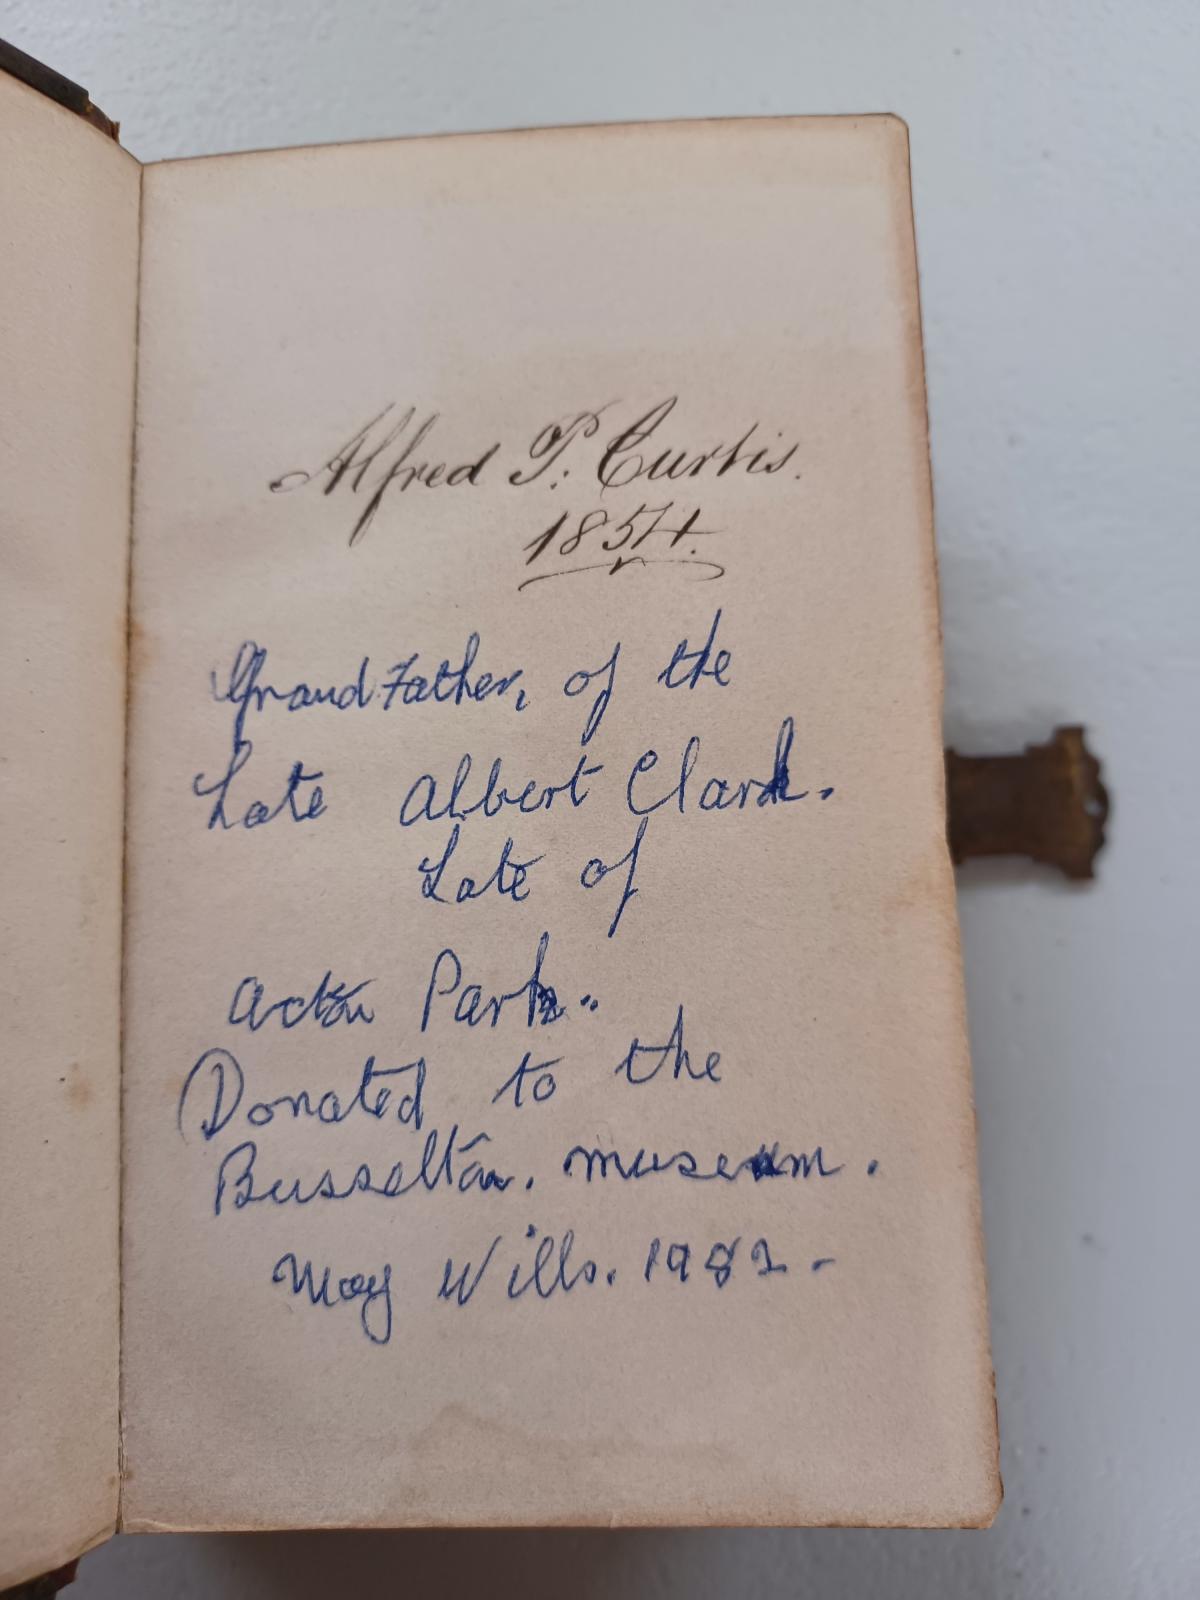 Alfred P. Curtis.
1854.
Grandfather, of the
Late Albert Clark.
Late of
Acton Park.
Donated to the
Busselton. museum.
May Wills. 1982 -